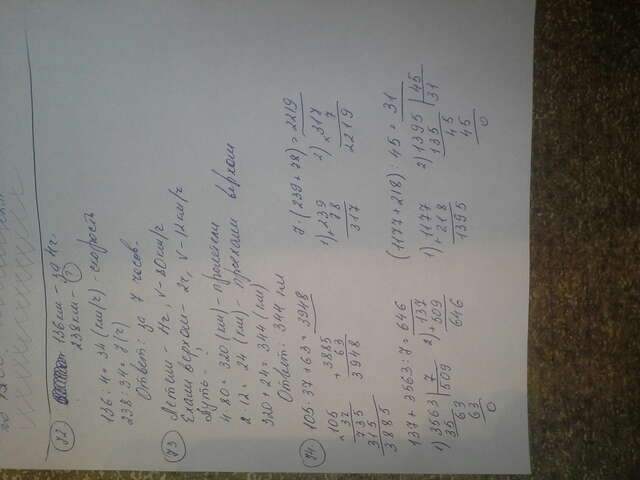 72 136км - за 4ч.
238км - ?
136 : 4 = 34 (км/ч) - скорость
238 : 34 = 7 (ч)
Ответ: за 7 часов.
73 Летели - 4ч, v - 80км/ч
Ехали верхом - 2ч, v - 12км/ч
Путь - ?
4 · 80 = 320 (км) - пролетели
2 · 12 = 24 (км) - проехали верхом
320 + 24 = 344 (км)
Ответ: 344 км
74. 105 · 37 + 63 = 3948
7 · (239 + 78) = 2219
× 105
37
735
315
3885
+ 3885
63
3948
1) + 239
78
317
2) × 317
7
2219
137 + 3563 : 7 = 646
(1177 + 218) : 45 = 31
1) 3563 | 7
35 509
63
63
0
2) + 137
509
646
1) + 1177
218
1395
2) 1395 | 45
135 31
45
45
0